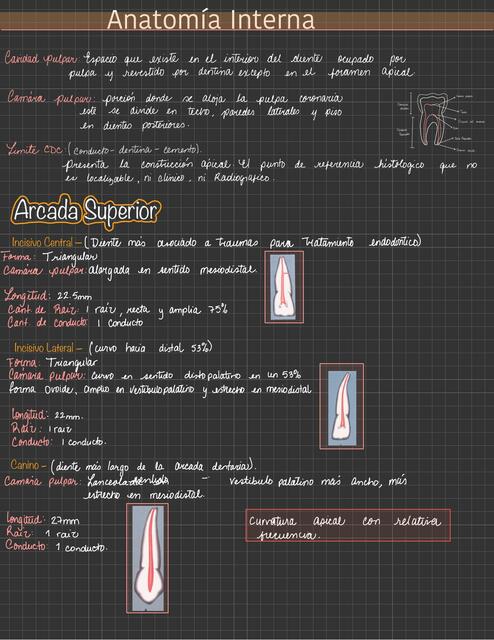 Anatomía Interna
Cavidad pulpar: Espacio que existe en el interior del diente ocupado por
pulpa y revestido por dentina excepto en el foramen apical.
Camára pulpar: porción donde se aloja la pulpa coronaria
este se divide en techo, paredes laterales y piso
en dientes posteriores.
Limite CDC: (conducto - dentina - cemento).
Presenta la constricción apical. El punto de referencia histologico que no
es localizable, ni clínico, ni Radiografico.
Arcada Superior
Incisivo Central - (Diente más asociado a traumas para tratamiento endodontico)
Forma: Triangular
Camára pulpar: Alargada en sentido mesiodistal.
Longitud: 22.5mm
Cant. de Raíz: 1 raíz, recta y amplia 75%
Cant. de conducto: 1 conducto
Incisivo Lateral - (curvo hacia distal 53%)
Forma: Triangular
Camára pulpar: curvo en sentido distopalatino en un 53%
forma Ovoide, amplio en vestibulopalatino y estrecho en mesiodistal
Longitud: 22mm.
Raíz: 1 raíz
Conducto: 1 conducto.
Canino - (diente más largo de la arcada dentaria).
Camára pulpar: vestibulo palatino más ancho, más
estrecho en mesiodistal.
Longitud: 27mm
Raíz: 1 raíz
Conducto: 1 conducto.
Curvatura apical con relativa
frecuencia.